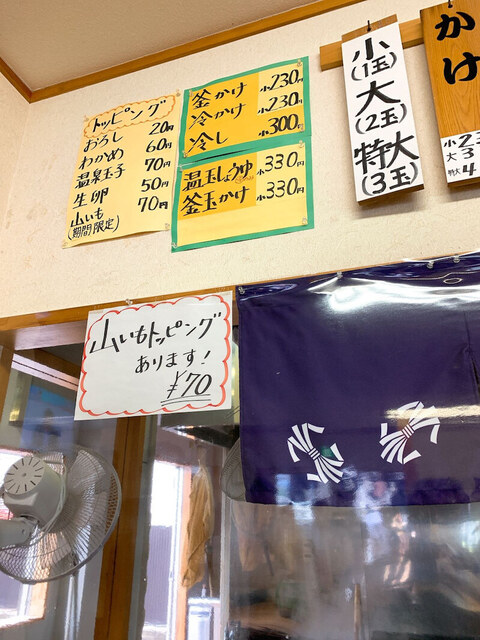 トッピング
おろし 20円
わかめ 60円
温泉玉子 70円
生卵 50円
山いも 70円
(期間限定)
釜かけ 小230円
冷かけ 小230円
冷し 小300円
温玉しょうゆ 小330円
釜玉かけ 小330円
小
(1玉)
大
(2玉)
特大
(3玉)
かけ
小2
大3
特大4
山いもトッピング
あります!
¥70